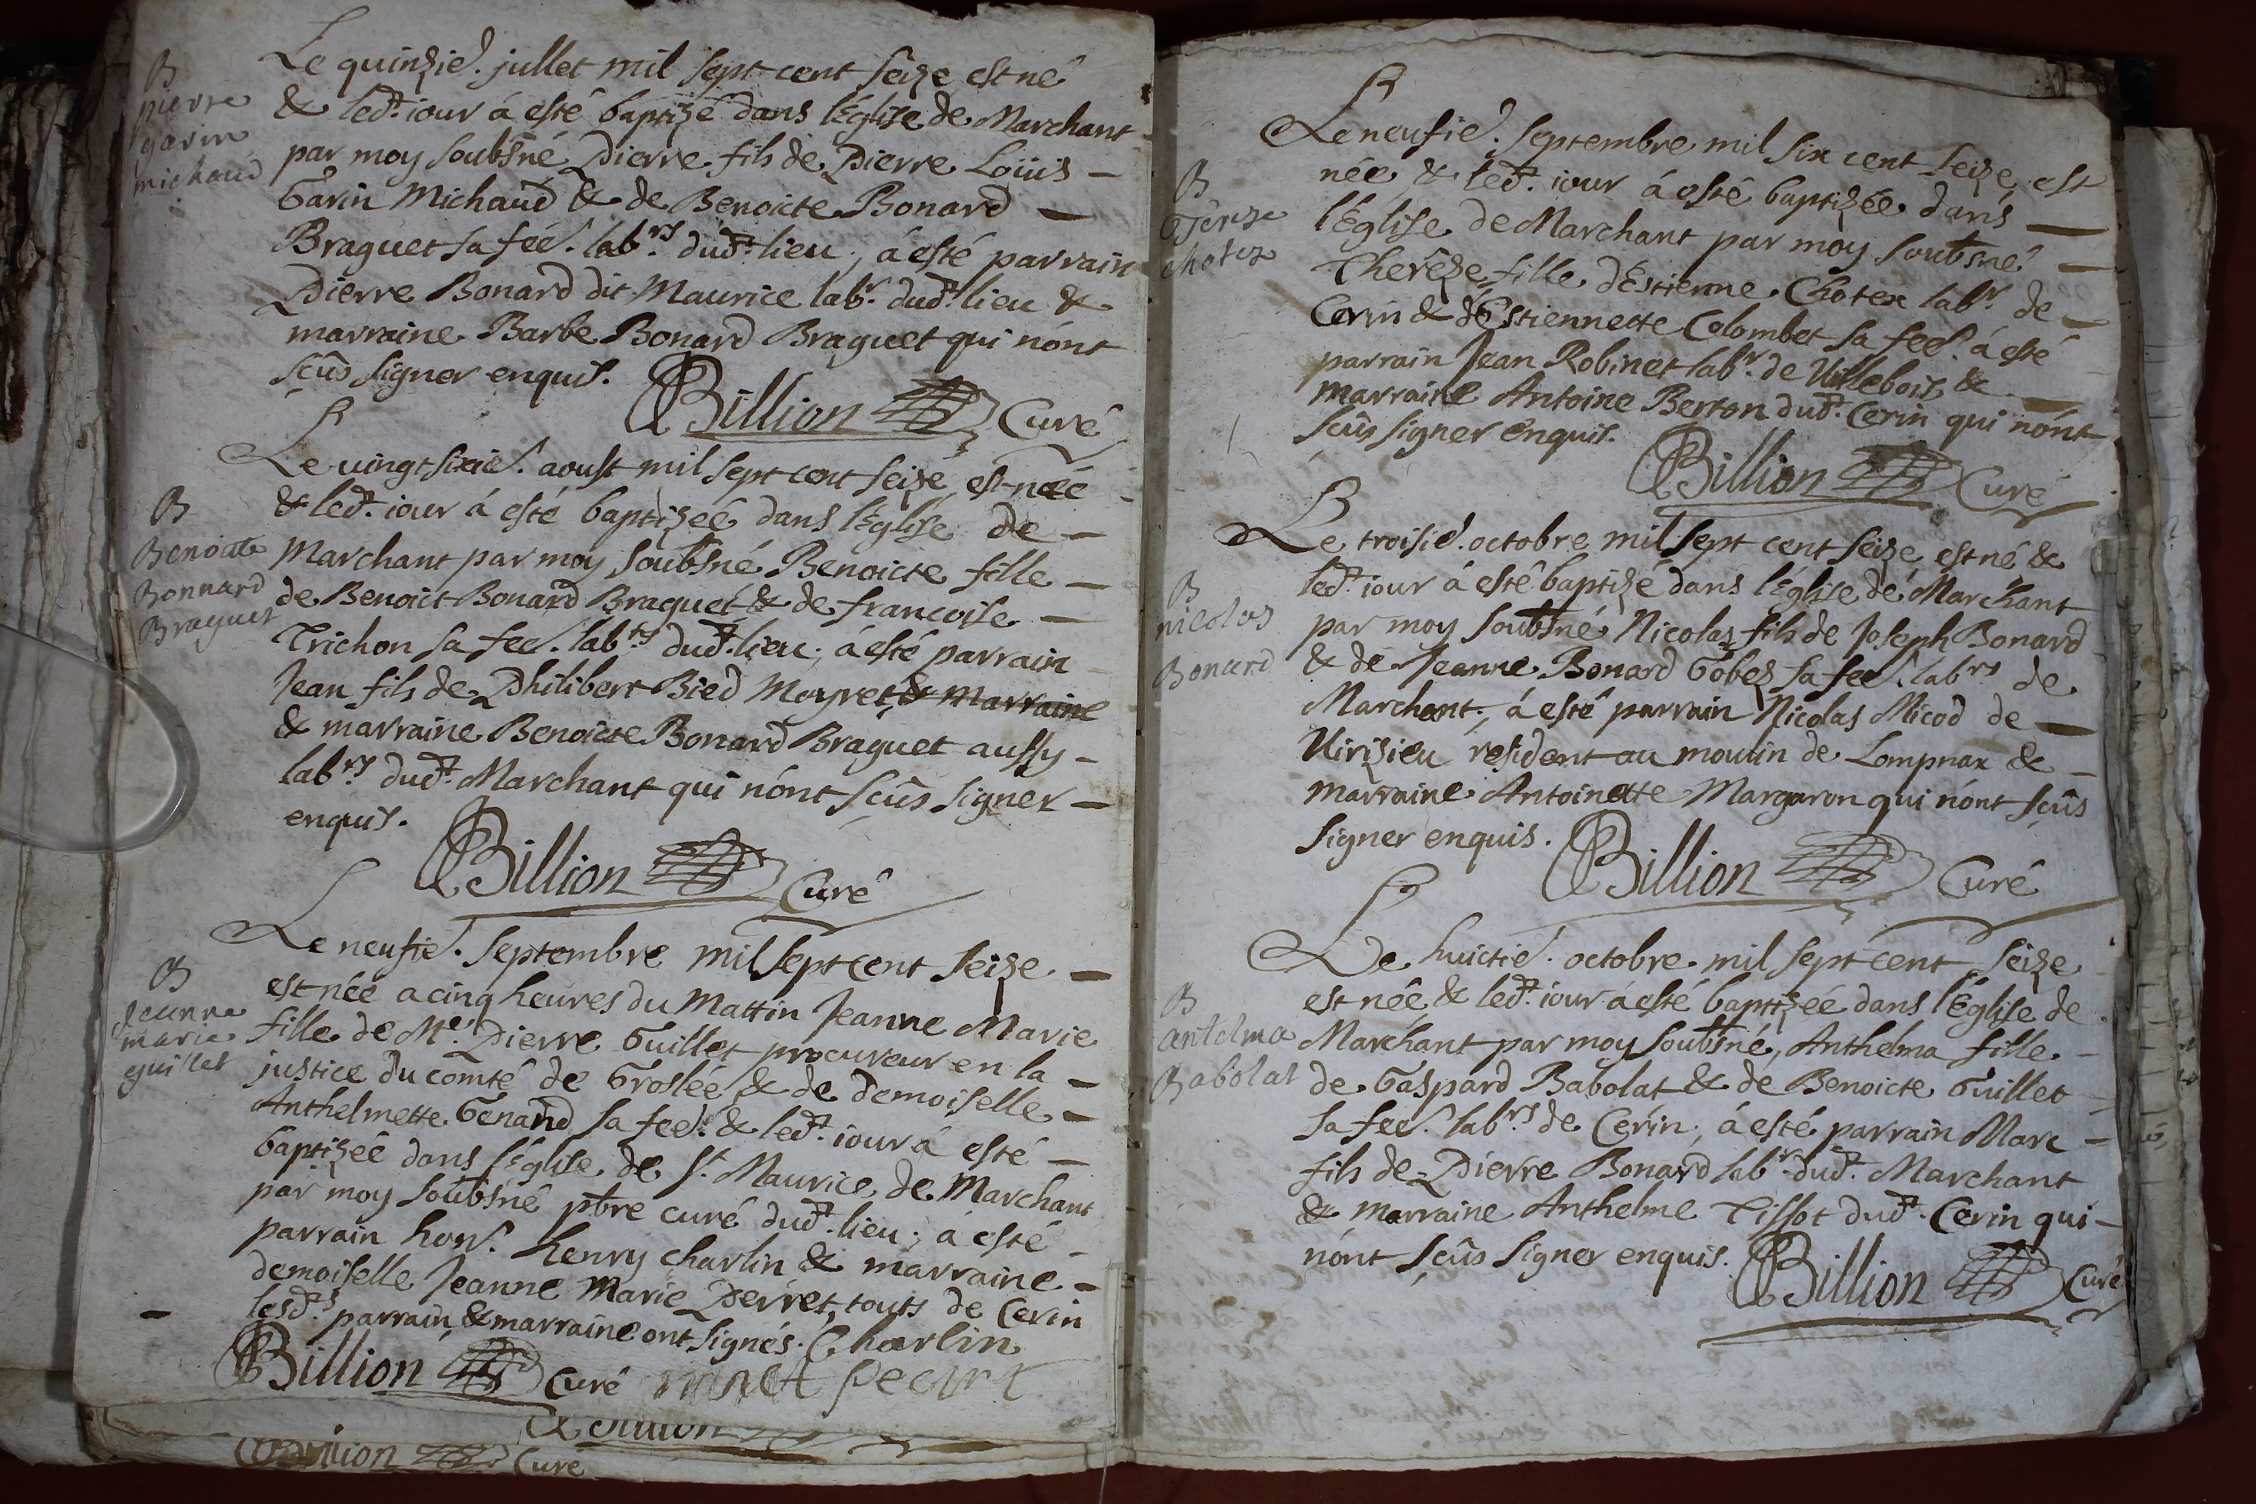 B
pierre
garin
michaud
Le quinzie. jullet mil sept cent seize est né
& led.t iour á esté baptizé dans lÉglise de Marchant
par moy soubsné Pierre fils de Pierre Loüis —
Garin Michaud & de Benoicte Bonard —
Braguet sa feé. lab.rs dud.t lieu, á esté parrain
Pierre Bonard dit Maurice lab.r dud.t lieu &
marraine Barbe Bonard Braguet qui nónt
scûs signer enquis.
Billion Curé
B
Benoite
Bonnard
Braguet
Le vingt sixie. aoust mil sept cent seize est néé
& led.t iour á esté baptizéé dans lÉglise de —
Marchant par moy soubsné Benoicte fille —
de Benoict Bonard Braguet & de francoise —
Trichon sa feé. lab.rs dud.t lieu; á esté parrain
Jean fils de Philibert Bied Moyret & marraine
& marraine Benoicte Bonard Braguet aussy —
lab.rs dud.t Marchant qui nónt scûs signer —
enquis.
Billion Curé
B
Jeanne
marie
guillet
Le neufie. septembre mil sept cent seize —
est néé a cinq heures du mattin Jeanne Marie
fille de M.e Pierre Guillet procureur en la —
justice du comté de Groslée & de demoiselle —
Anthelmette Genand sa feé. & led.t iour á esté —
baptizéé dans lÉglise de S.t Maurice de Marchant
par moy soubsné pbre curé dud.t lieu; á esté —
parrain hon. henry charlin & marraine —
demoiselle Jeanne Marie Perret, touts de Cerin
lesd.ts parrain & marraine ont signés. Charlin
Billion Curé
Billion
Billion Curé
B
Terese
chotex
Le neufie. septembre mil six cent seize est
néé & led.t iour á esté baptizéé dans —
lÉglise de Marchant par moy soubsné —
Therêze fille dÉstienne Chotex lab.r de —
Cerin & dÉstiennette Colombet sa feé. á esté
parrain Jean Robinet lab.r de Villebois &
marraine Antoine Berton dud.t Cerin qui nónt
scûs signer enquis.
Billion Curé
B
nicolas
Bonard
Le troisie. octobre mil sept cent seize est né &
led.t iour á esté baptizé dans lÉglise de Marchant
par moy soubsné Nicolas fils de Joseph Bonard
& de Jeanne Bonard Gobez sa feé. lab.rs de
Marchant; á esté parrain Nicolas Micod de —
Virizieu résident au moulin de Lompnax & —
marraine Antoinette Margaron qui nónt scûs
signer enquis.
Billion Curé
B
antelma
Babolat
Le huictie. octobre mil sept cent seize
est néé & led.t iour á esté baptizéé dans lÉglise de
Marchant par moy soubsné, Anthelma fille —
de Gaspard Babolat & de Benoicte Guillet
sa feé. lab.rs de Cerin; á esté parrain Marc —
fils de Pierre Bonard lab.r dud.t Marchant
& marraine Anthelme Tissot dud.t Cerin qui —
nónt scûs signer enquis.
Billion Curé